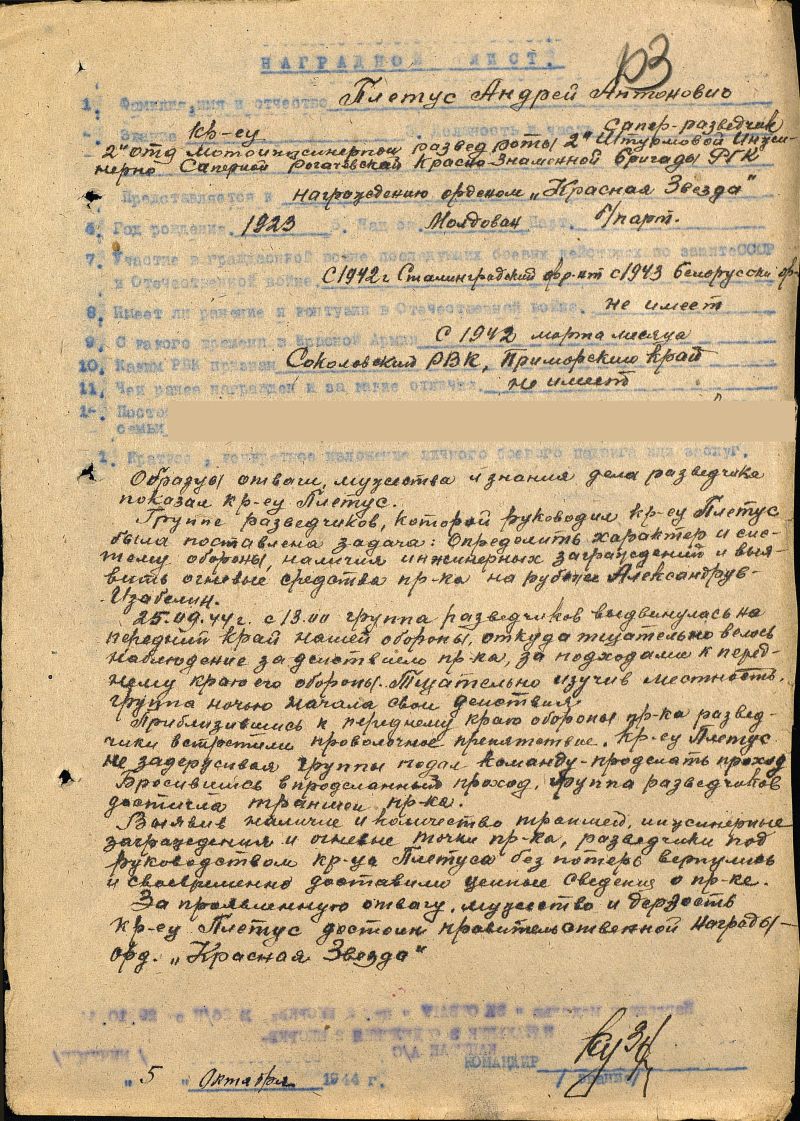 103
НАГРАДНОЙ ЛИСТ.
1. Фамилия, имя и отчество Плетус Андрей Антонович
Звание кр-еу 3. Должность и часть сапер-разведчик
2го отд мотоинженерной развед роты 2й Штурмовой Инже-
нерно Саперной Рогачевской Красно-Знаменной бригады РГК
Представляется к награждению орденом „Красная Звезда"
Год рождения 1923 5. Нац Молдован Парт. б/парт.
7. Участие в гражданской войне последующих боевых действиях по защите СССР
и Отечественной войне с 1942 г Сталинградский фронт с 1943 Белорусский фр-
8. Имеет ли ранение и контузии в Отечественной войне. не имеет
9. С какого времени в Красной Армии с 1942 марта месяца
10. Каким РВК призван Соколовским РВК, Приморский край
11. Чем ранее награжден и за какие отличия. не имеет
Посто
семьи
1. Краткое, конкретное изложение личного боевого подвига или заслуг.
Образцы отваги, мужества и знания дела разведчика
показал кр-еу Плетус.
Группе разведчиков, которой руководил кр-еу Плетус
была поставлена задача: Определить характер и сис-
тему обороны, наличия инженерных заграждений и выя-
вить огневые средства пр-ка на рубеже Александрув-
Изабелин.
25.09.44г. с 13.00 группа разведчиков выдвинулась на
передний край нашей обороны, откуда тщательно велось
наблюдение за действием пр-ка, за подходами к перед-
нему краю его обороны. Тщательно изучив местность,
группа ночью начала свои действия.
Приблизившись к переднему краю обороны пр-ка развед-
чики встретили проволочное препятствие. кр-еу Плетус
не задерживая группы подал команду-проделать проход
Бросившись в проделанный проход, группа разведчиков
достигла траншеи пр-ка.
Выявив наличие и количество траншей, инженерные
заграждения и огневые точки пр-ка, разведчики под
руководством кр-ца Плетуса без потерь вернулись
и своевременно доставили ценные сведения о пр-ке.
За проявленную отвагу, мужество и дерзость
кр-еу Плетус достоин правительственной награды-
орд. „Красная Звезда"
КОМАНДИР
"5" Октября 1944 г.